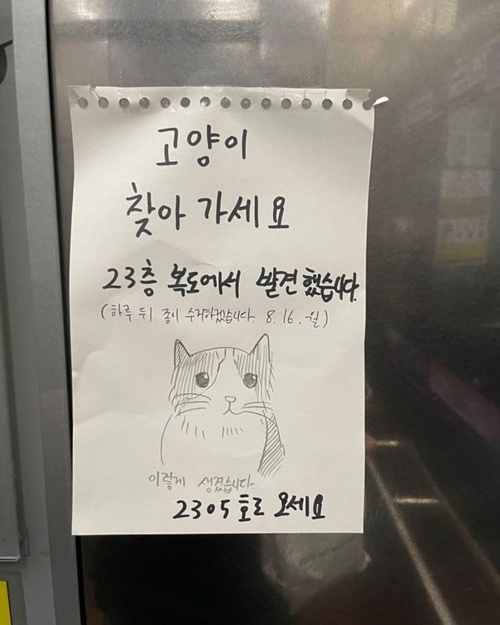 고양이
찾아 가세요
23층 복도에서 발견했습니다.
(하루 뒤 종이 수거하겠습니다. 8.16.월)
이렇게 생겼습니다.
2305호로 오세요